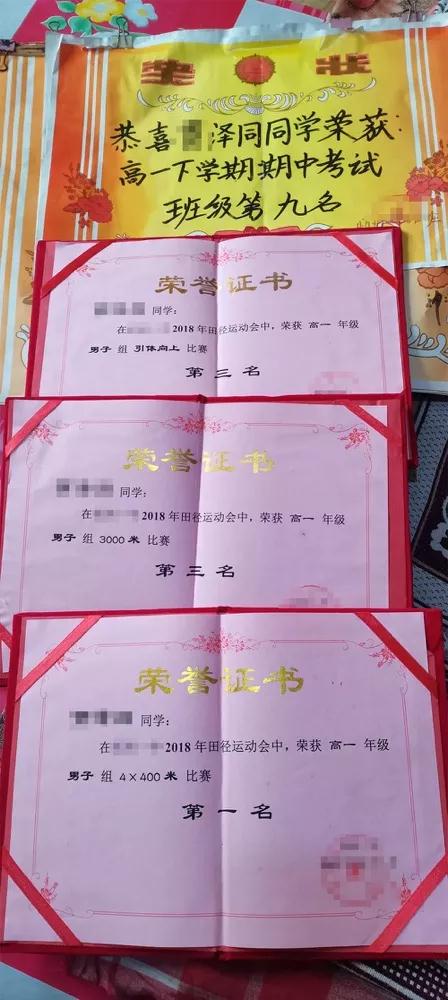 奖状
恭喜泽同同学荣获:
高一下学期期中考试
班级第九名
荣誉证书
同学:
在2018年田径运动会中,荣获 高一 年级
男子 组 引体向上 比赛
第三名
荣誉证书
同学:
在2018年田径运动会中,荣获 高一 年级
男子 组 3000米 比赛
第三名
荣誉证书
同学:
在2018年田径运动会中,荣获 高一 年级
男子 组 4×400米 比赛
第一名